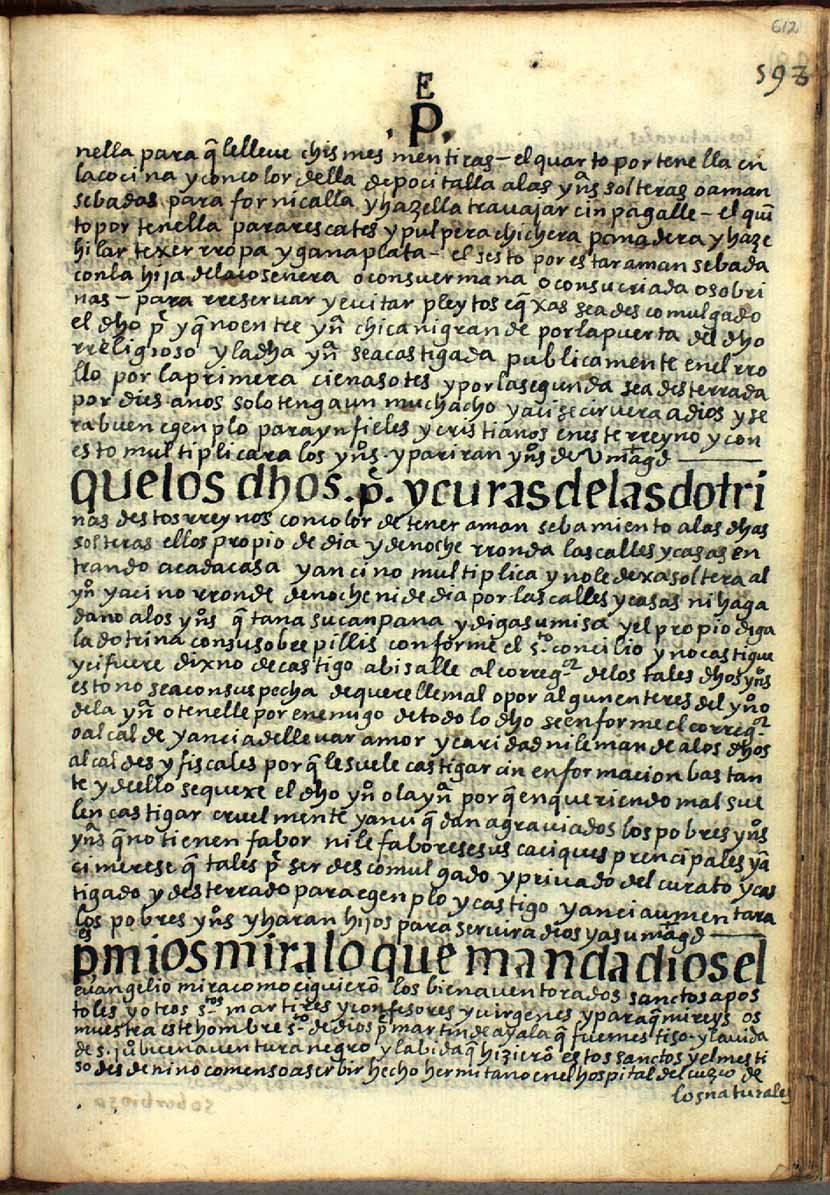 612
593
E
.P.
nella para q̃ le lleue chismes mentiras – el quarto por tenella en
la cocina y con color della depocitalla a las yn̄s solteras o aman
sebados para fornicalla y hazella trauajar cin pagalle – el quin
to por tenella para rescates y pulpera chichera panadera y haze
hilar texer rropa y gana plata – el sesto por estar aman sebada
con la hija de la cosenera o con su ermana o con su criada o sobri
nas – para rreseruar y euitar pleytos e q̃xas sea descomulgado
el dho p.e y q̃ no entre yn̄a chica ni grande por la puerta del dho
rreligioso y la dha yn̄a sea castigada publicamente en el rro
llo por la primera cien asotes y por la segunda sea desterrada
por dies años solo tenga un muchacho y aci se ciruera a dios y se
ra buen egenplo para ynfieles y cristianos en este rreyno y con
esto multiplicara los yn̄os. y pariran yn̄os de v mag.d
que los dhos .p.es y curas de las dotri
nas destos rreynos con color de tener aman sebamiento a las dhas
solteras ellos propio de dia y de noche rronda las calles y casas en
trando a cada casa y anci no multiplica y no le dexa soltera al
yn̄o y aci no rronde de noche ni de dia por las calles y casas ni haga
daño a los yn̄os q̃ tana su canpana y diga su misa y el propio diga
la dotrina con su sobrepillis conforme el s.to concilio y no castigue
y ci fuere dixno de castigo abisalle al correg.or de los tales dhos yn̄os
esto no sea con suspecha de querelle mal o por algun enteres del yn̄o
o de la yn̄a o tenelle por enemigo de todo lo dho se enforme el correg.or
o alcalde y ancia de lleuar amor y caridad ni le mande a los dhos
alcaldes y fiscales por q̃ le suele castigar cin enformacion bastan
te y dello se quexe el dho yn̄o o la yn̄a por q̃ en queriendo mal sue
len castigar cruelmente y anci q̃dan agrauiados los pobres yn̄os
yn̄as q̃ no tienen fabor ni le faborese sus caciques prencipales y a
ci merese q̃ tales p.es ser descomulgado y priuado del curato y cas
tigado y desterrado para egenplo y castigo y anci aumentara
los pobres yn̄os y haran hijos para seruir a dios y a su mag.d
p.es mios mira lo que manda dios el
euangelio mira como ciguierō los bienauentorados sanctos apos
toles y otros s.tos martires y confesores y uirgenes y para q̃ mireys os
muestra este hombre s.to de dios p.e martin de ayala q̃ fue mestiso y la uida
de s. ju.o buenauentura negro y la bida q̃ hizierō estos sanctos y el mesti
so desde nino comenso a serbir hecho hermitano en el hospital del cuzco de
los naturales